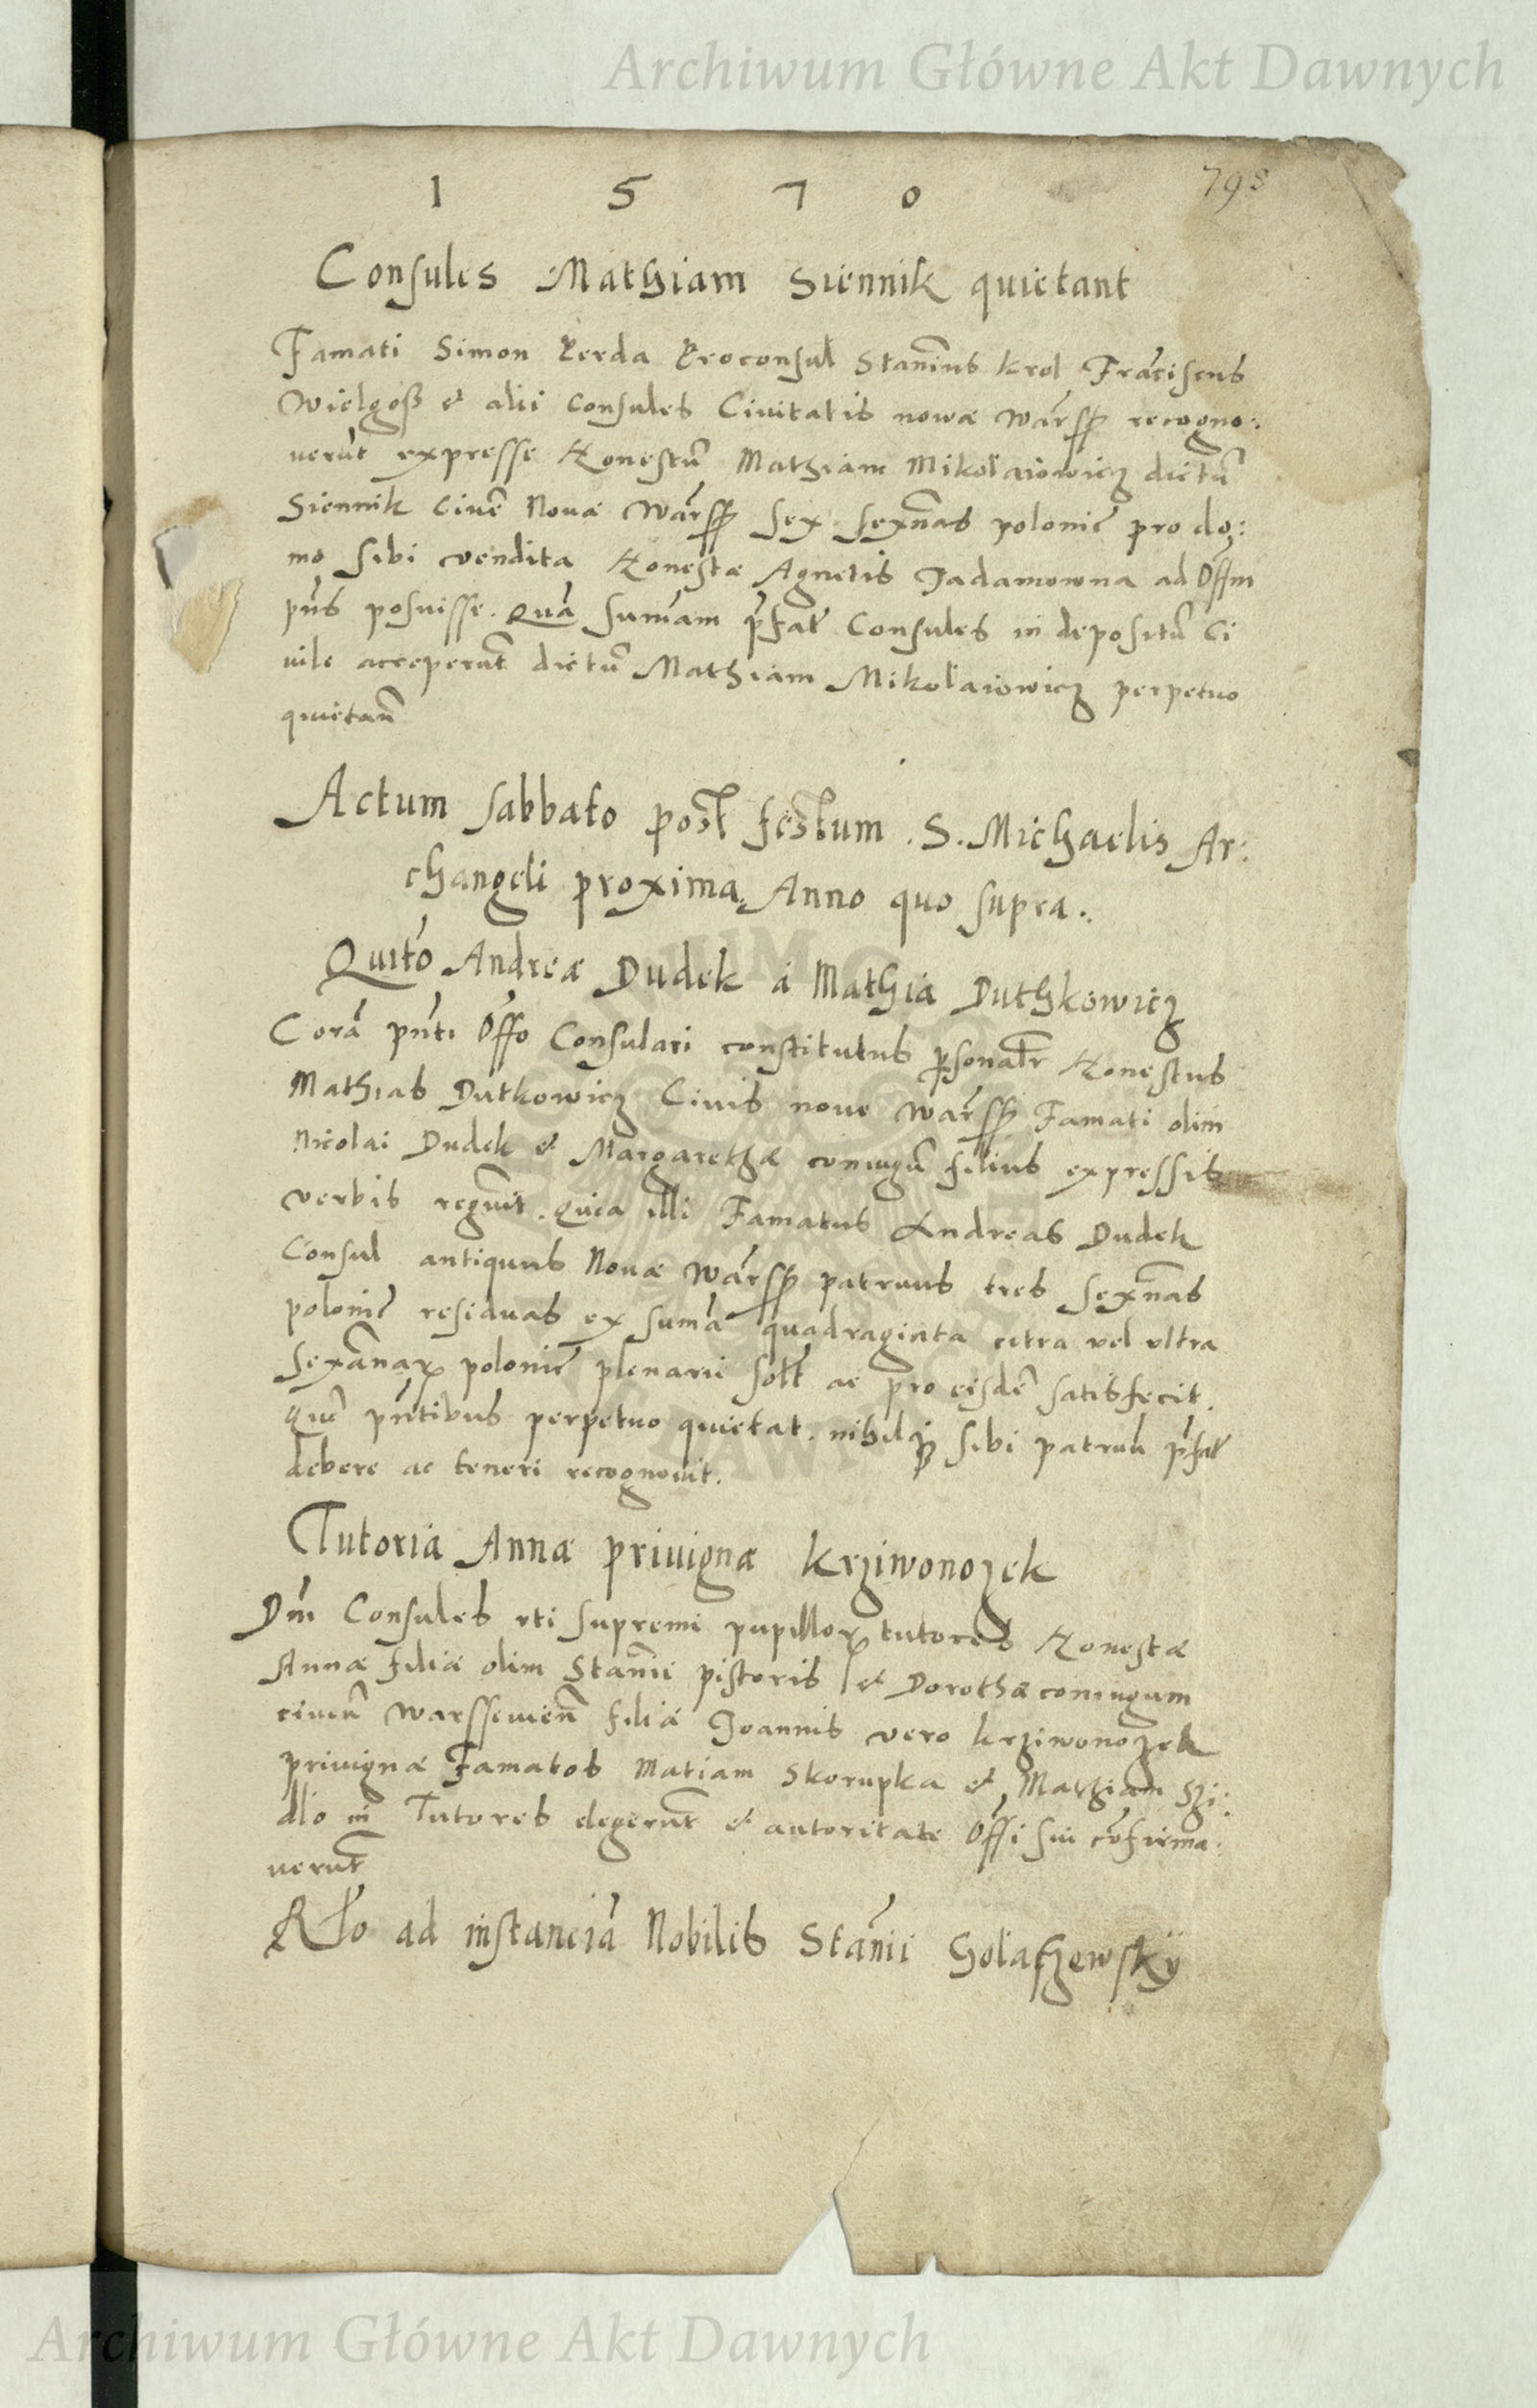 Archiwum Główne Akt Dawnych
1 5 7 0
798
Consules Mathiam Siennik quietant
Famati Simon Perda Proconsul Stanius Krol Franciscus
Wielgosz et alii Consules Civitatis nowæ Warss recogno:
verūt expresse Honestū Mathiam Mikolaiowicz dictū
Siennik Civē Novæ Warss sex sexnas polonic pro do:
mo sibi vendita Honestæ Agnetis Jadamowna ad Offm
pns posuisse. Quā sumam pfat Consules in depositū Ci
vile acceperūt dictū Mathiam Mikolaiowicz perpetuo
quietan
Actum Sabbato post festum . S. Michaelis Ar:
changeli proxima Anno quo supra.
Quito Andreæ Dudek a Mathia Duthkowicz
Corā pnti Offo Consulari constitutus psonatr Honestus
Mathias Dutkowicz Civis nove Warss Famati olim
Nicolai Dudek et Margarethæ coniugū filius expressis
verbis regnvit. Quia illi Famatus Andreas Dudek
Consul antiquus Novæ Warss patruus tres sexnas
polonic residuas ex sumā quadraginta citra vel ultra
sexanar polonic plenarie solt ac pro eisdē satisfecit.
Quē pntibus perpetuo quietat. nihilq sibi patruū pfat
debere ac teneri recognovit.
Tutoria Annæ privignæ Krziwonozek
Dni Consules uti supremi pupillor tutores Honestæ
Annæ filiæ olim Stanii pistoris et Dorothæ coniugum
civiū Warsseuien filiæ Joannis vero Krziwonozek
privignæ Famatos Matiam Skorupka et Mathiam Szi:
dlo in Tutores elegerūt et autoritate Offi sui cōfirma:
verūt
Rło ad instanciā Nobilis Stanii Golaszewsky
Archiwum Główne Akt Dawnych